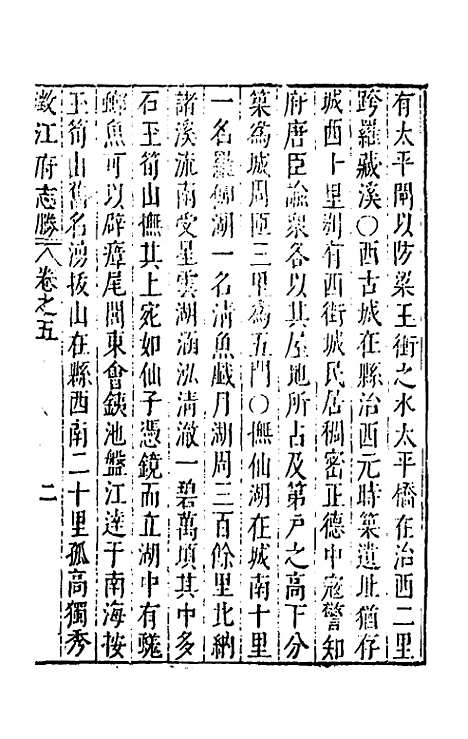 有太平閘以防梁王衝之水太平橋在治西二里
跨羅藏溪○西古城在縣治西元時築遺址猶存
城西十里別有西街城民居稠密正德中寇警知
府唐臣諭衆各以其屋地所占及第戸之高下分
築為城周匝三里為五門○撫仙湖在城南十里
一名羅伽湖一名清魚戲月湖周三百餘里北納
諸溪流南受星雲湖涵泓清澈一碧萬頃其中多
石玉筍山撫其上宛如仙子憑鏡而立湖中有
魚可以辟瘴尾閭東會鐵池盤江達于南海按
玉筍山舊名湧拔山在縣西南二十里孤高獨秀
澂江府志勝 卷之五 二